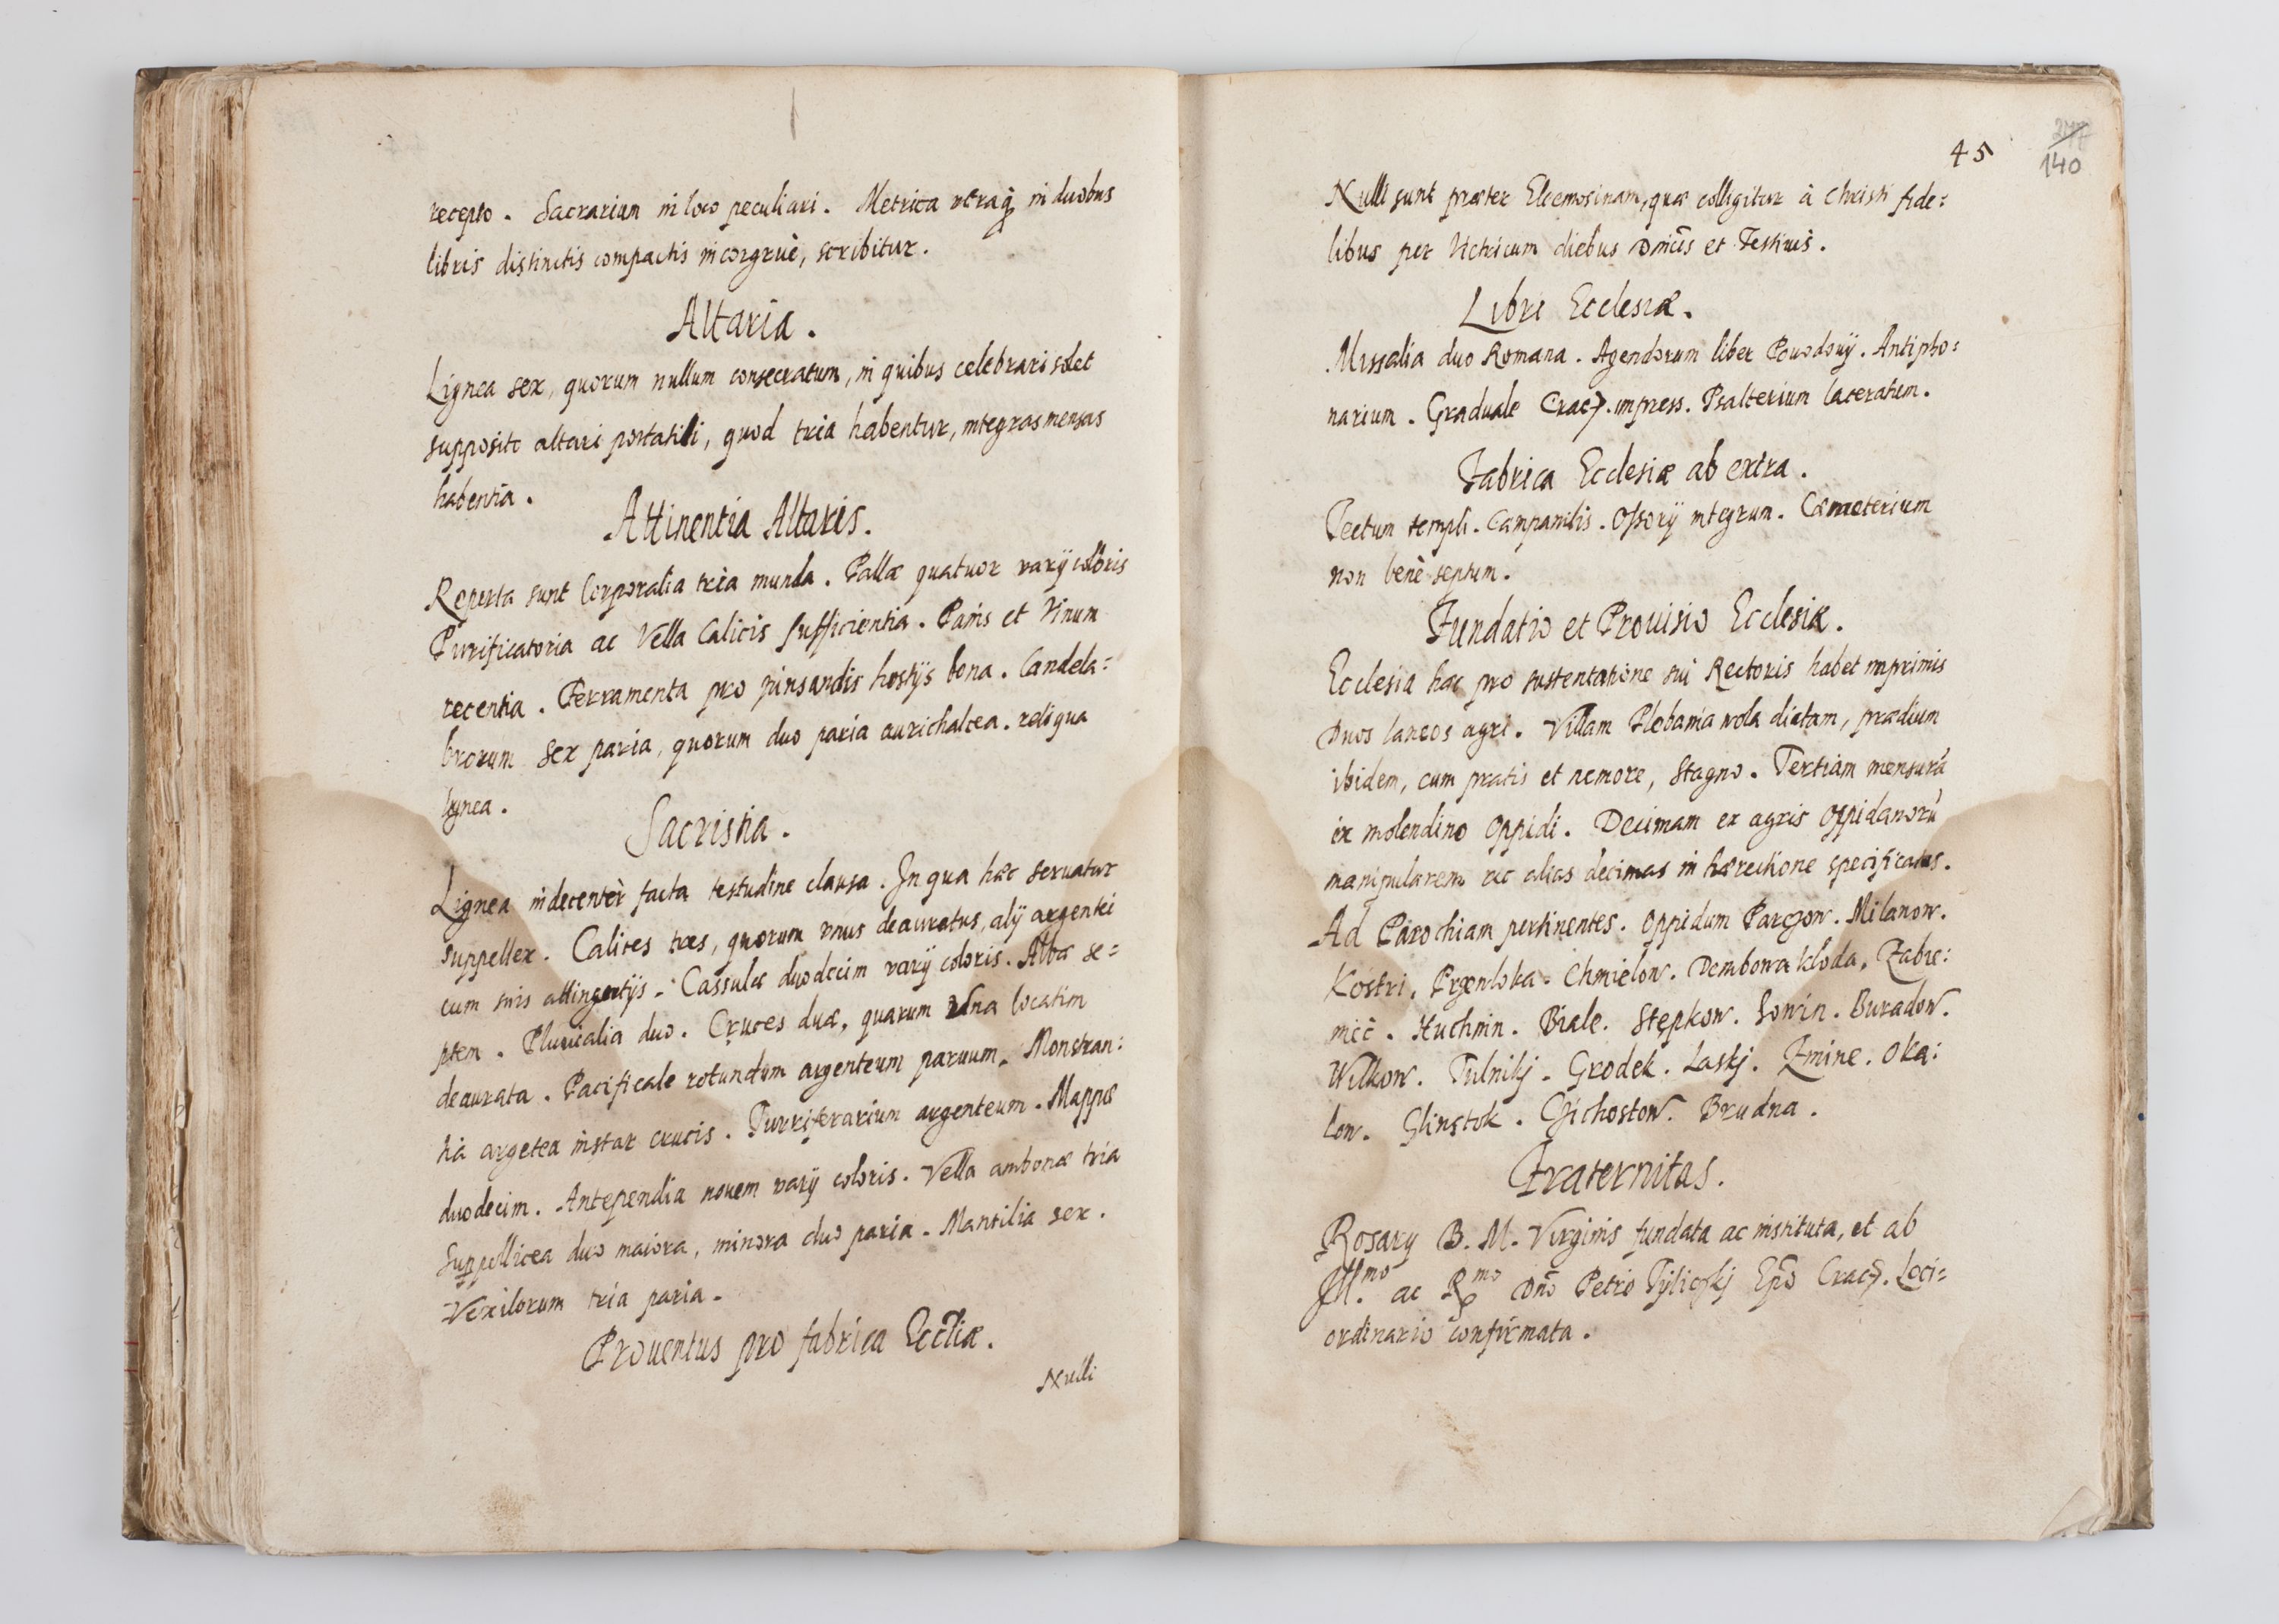 recepto. Sacrarium in loco peculiari. Metrica utraq; in duobus
libris distinctis compactis incongruè, scribitur.
Altaria.
Lignea sex, quorum nullum consecratum, in quibus celebrari solet
supposito altari portatili, quod tria habentur, integras mensas
habentia.
Attinentia Altaris.
Reperta sunt Corporalia tria munda. Pallæ quatuor varij coloris
Purificatoria ac Vella Calicis sufficientia. Panis et Vinum
recentia. Ferramenta pro pinsandis hostijs bona. Candela=
brorum sex paria, quorum duo paria aurichalcea. reliqua
lignea.
Sacristia.
Lignea indecenter facta testudine clausa. In qua hæc seruatur
suppellex. Calices tres, quorum vnus deauratus, alij argentei
cum suis attinentijs. Cassulæ duodecim varij coloris. Albæ se=
ptem. Pluuialia duo. Cruces duæ, quarum vna locatim
deaurata. Pacificale rotundum argenteum paruum. Monstran:
tia argetea instar crucis. Turriferarium argenteum. Mappæ
duodecim. Antependia nouem varij coloris. Vella ambonæ tria
Suppellicea duo maiora, minora duo paria. Mantilia sex.
Vexilorum tria paria.
Prouentus pro fabrica Eccliæ.
Nulli
45
277
140
Nulli sunt præter Eleemosinam, quæ colligitur à Christi fide:
libus per Victricum diebus Dnicis et Festiuis.
Libri Ecclesiæ.
Missalia duo Romana. Agendorum liber Powodowij. Antipho:
narium. Graduale Crac. impress. Psalterium laceratum.
Fabrica Ecclesiæ ab extra.
Tectum templi. Campanilis. Ossorij integrum. Cæmeterium
non benè septum.
Fundatio et Prouisio Ecclesiæ.
Ecclesia hæc pro sustentatione sui Rectoris habet inprimis
Duos laneos agri. Villam Plebania wola dictam, prædium
ibidem, cum pratis et nemore, stagno. Tertiam mensurā
ex molendino oppidi. Decimam ex agris oppidanorū
manipularem ac alias decimas in hærectione specificatas.
Ad Parochiam pertinentes. Oppidum Parczow. Milanow.
Kostri. Przewloka. Chmielow. Dembowa kloda. Zabie:
micè. Huchnin. Biale. Stępkow. Sowin. Buradow.
Wilkow. Tulnikj. Grodek. Laskj. Zmine. Oka:
low. Glinstok. Gichostow. Brudna.
Fraternitas.
Rosary B. M. Virginis fundata ac instituta, et ab
Ill.mo ac R.mo Dno Petro Tylickj Epo Crac. Loci=
ordinario confirmata.